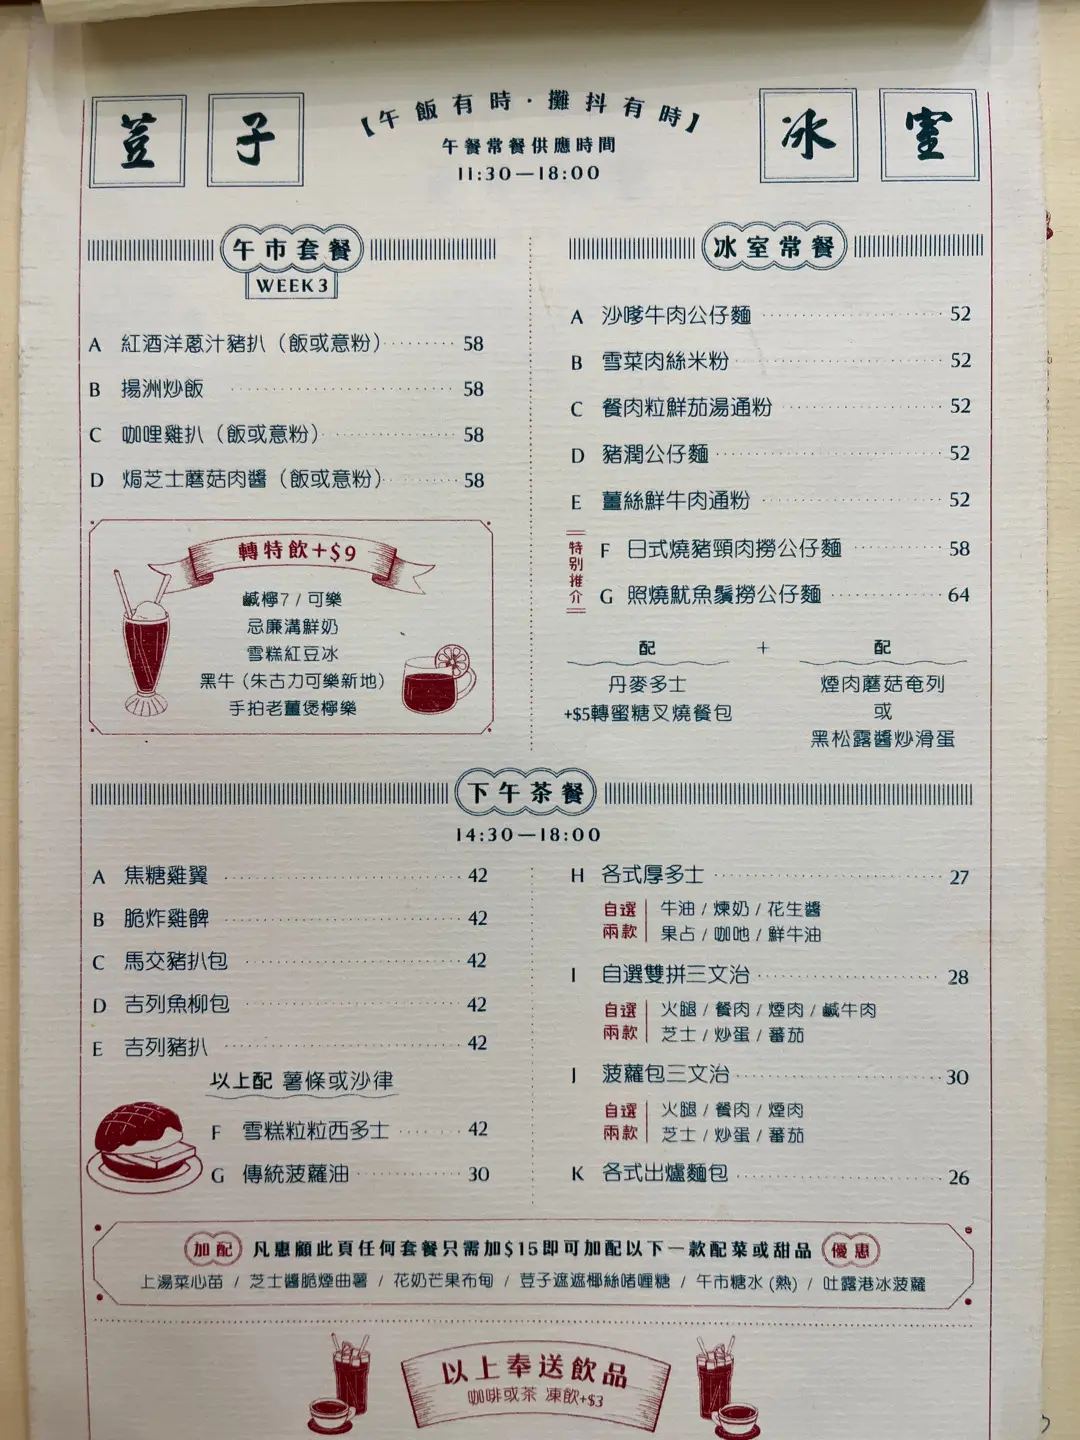 荳子
冰室
【午飯有時·攤抖有時】
午餐常餐供應時間
11:30—18:00
午市套餐
WEEK 3
A 紅酒洋蔥汁豬扒（飯或意粉） 58
B 揚洲炒飯 58
C 咖哩雞扒（飯或意粉） 58
D 焗芝士蘑菇肉醬（飯或意粉） 58
轉特飲+$9
鹹檸7 / 可樂
忌廉溝鮮奶
雪糕紅豆冰
黑牛（朱古力可樂新地）
手拍老薑煲檸樂
冰室常餐
A 沙嗲牛肉公仔麵 52
B 雪菜肉絲米粉 52
C 餐肉粒鮮茄湯通粉 52
D 豬潤公仔麵 52
E 薑絲鮮牛肉通粉 52
特別推介
F 日式燒豬頸肉撈公仔麵 58
G 照燒魷魚鬚撈公仔麵 64
配 + 配
丹麥多士
+$5轉蜜糖叉燒餐包
煙肉蘑菇奄列
或
黑松露醬炒滑蛋
下午茶餐
14:30—18:00
A 焦糖雞翼 42
B 脆炸雞髀 42
C 馬交豬扒包 42
D 吉列魚柳包 42
E 吉列豬扒 42
以上配 薯條或沙律
F 雪糕粒粒西多士 42
G 傳統菠蘿油 30
H 各式厚多士 27
自選兩款
牛油 / 煉奶 / 花生醬
果占 / 咖吔 / 鮮牛油
I 自選雙拼三文治 28
自選兩款
火腿 / 餐肉 / 煙肉 / 鹹牛肉
芝士 / 炒蛋 / 蕃茄
J 菠蘿包三文治 30
自選兩款
火腿 / 餐肉 / 煙肉
芝士 / 炒蛋 / 蕃茄
K 各式出爐麵包 26
加配 凡惠顧此頁任何套餐只需加$15即可加配以下一款配菜或甜品 優惠
上湯菜心苗 / 芝士醬脆煙曲薯 / 花奶芒果布甸 / 荳子遮遮椰絲啫喱糖 / 午市糖水 (熱) / 吐露港冰菠蘿
以上奉送飲品
咖啡或茶 凍飲+$3